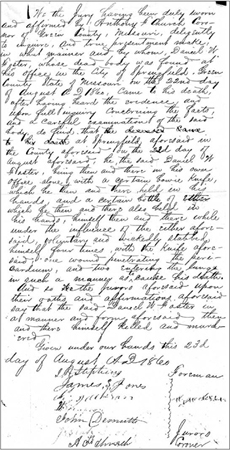 We the Jury having been duly sworn
and affirmed by Anthony F Church Coro
ner of Green County, Missouri, diligently
to inquire, and true presentment make,
in what manner and by whom, Daniel W
Lester, whose dead body was found at
his office in the City of Springfield Green
County State of Missouri on the 22nd day
of August A.D. 1860. Came to his death,
after having heard the evidence, and
upon full inquiry concerning the facts,
and a careful examination of the said
body, do find, that the deceased came
to his death at Springfield, aforesaid in
the County aforesaid, on the day of
August aforesaid, he the said Daniel W
Lester, being then and there in his own
office alone, with a certain Knife,
which he then and there held in his
hands, and a certain bottle of Ether
which he then and there also held in
his hands, himself then and there while
under the influence of the ether afore
said, voluntary and wickedly stabbed
himself four times with the Knife afore
said; one wound penetrating the peri-
cardium, and two entering the lungs
in such a manner as to cause his death.
And so the Jurors aforesaid upon
their oaths and affirmations aforesaid
say that the said Daniel W Lester in
manner and form aforesaid then
and there himself killed and murd
ered.
Given under our hands this 23d
day of August A.D. 1860.
Stephens
Foreman
James Jones
John Demutt
Jurors
Coroner